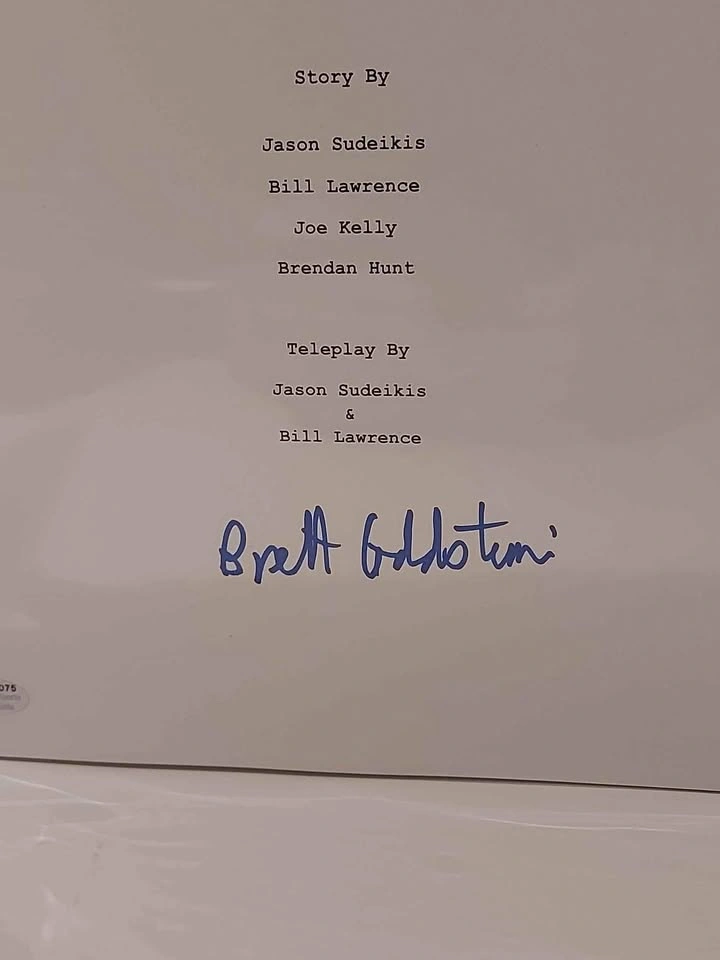 Story By
Jason Sudeikis
Bill Lawrence
Joe Kelly
Brendan Hunt
Teleplay By
Jason Sudeikis
&
Bill Lawrence
Brett Goldstein
075